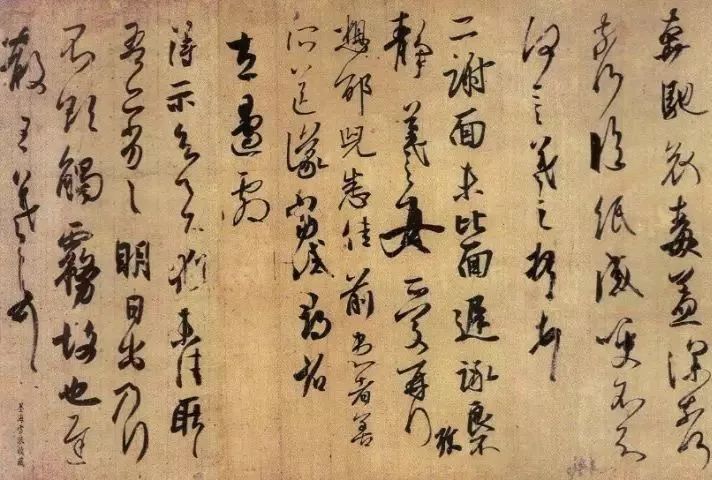 奔馳哀毒益深奈何
奈何臨紙感哽不知
何言羲之頓首頓首
二謝面未比面遲詠良不
靜羲之女愛再拜
想邵兒悉佳前患者善
所送議當試尋省
左邊劇
得示知足下猶未佳耿耿
吾亦劣劣明日出乃行
不欲觸霧故也遲
散王羲之頓首